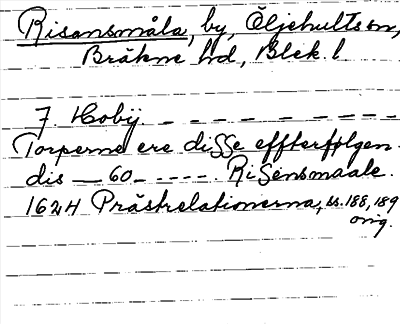 Risansmåla, by, Öljehults sn,
Bräkne hd, Blek. l
7 Hoby. — — — — — — —
Torperne ere disse effterfølgen
dis — 60 — - - - - . Risensmaale.
1624 Prästrelationerna, ss. 188, 189
orig.